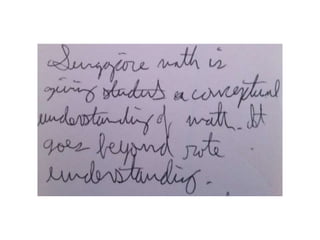 Singapore math is
giving students a conceptual
understanding of math. It
goes beyond rote
understanding.